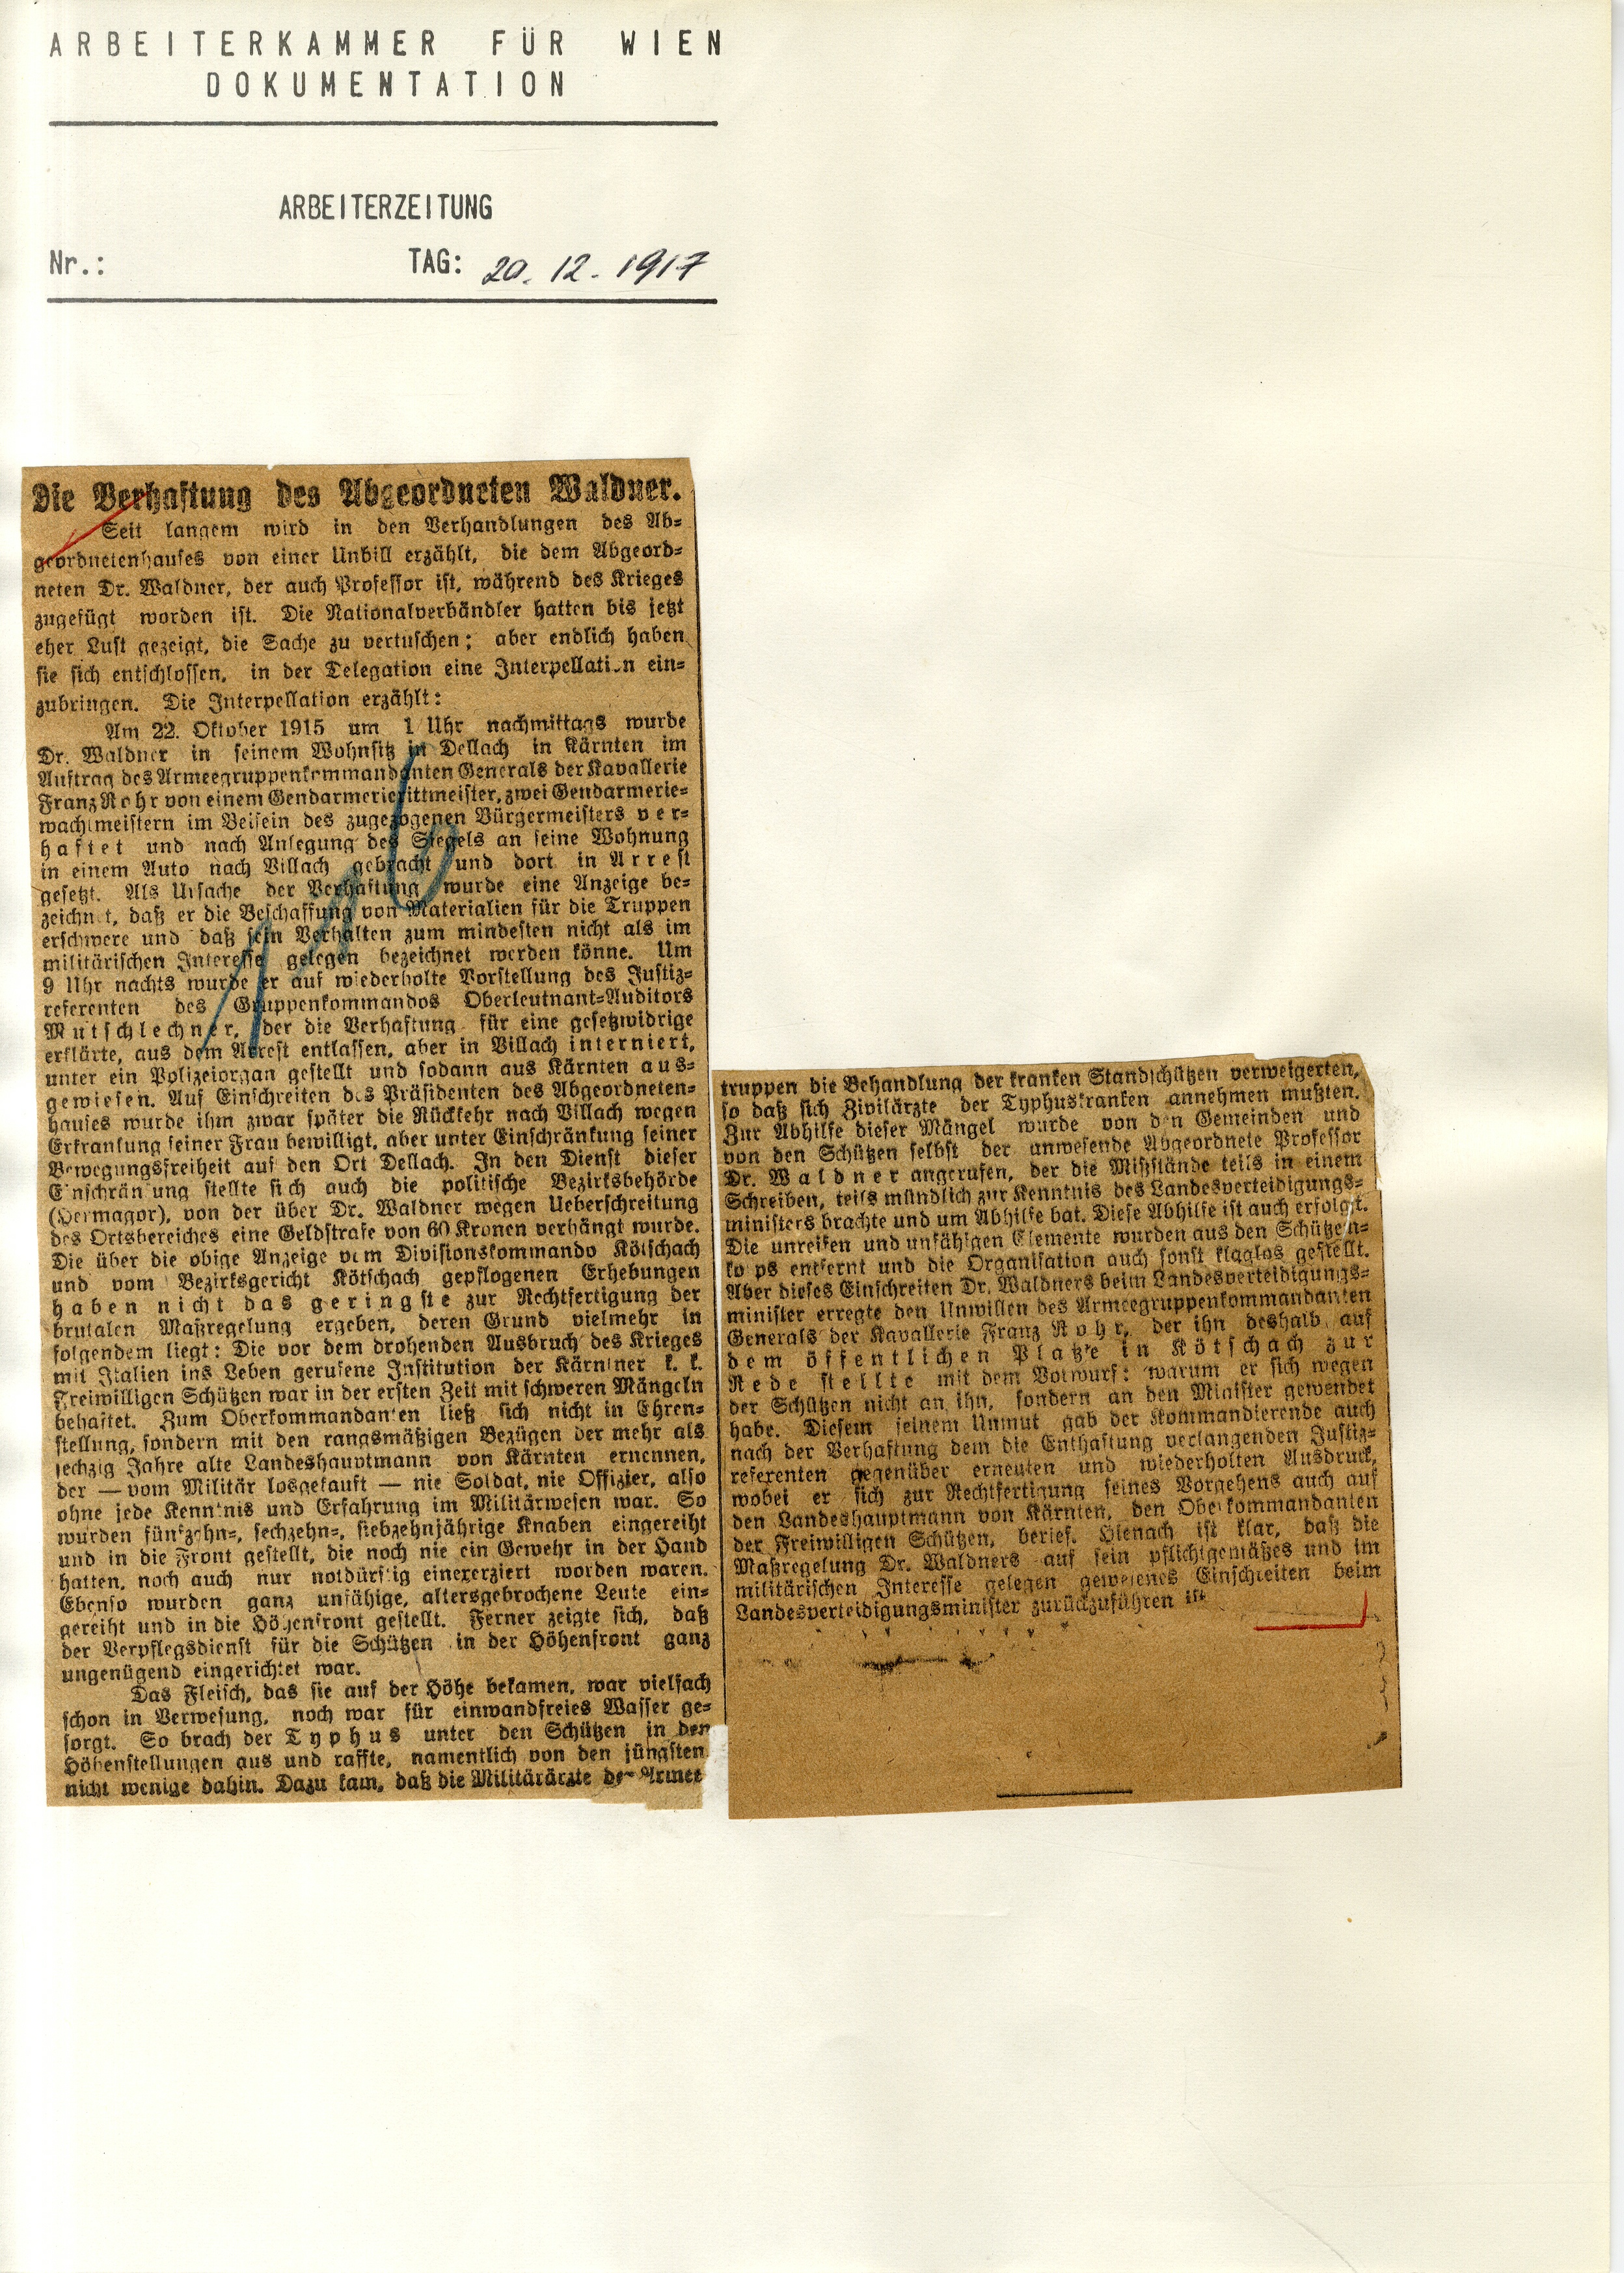 ARBEITERKAMMER FÜR WIEN
DOKUMENTATION
ARBEITERZEITUNG
Nr.: TAG: 20. 12. 1917
Die Verhaftung des Abgeordneten Waldner.
Seit langem wird in den Verhandlungen des Ab-
geordnetenhauses von einer Unbill erzählt, die dem Abgeord-
neten Dr. Waldner, der auch Professor ist, während des Krieges
zugefügt worden ist. Die Nationalverbändler hatten bis jetzt
eher Lust gezeigt, die Sache zu vertuschen; aber endlich haben
sie sich entschlossen, in der Delegation eine Interpellation ein-
zubringen. Die Interpellation erzählt:
Am 22. Oktober 1915 um 1 Uhr nachmittags wurde
Dr. Waldner in seinem Wohnsitz in Dellach in Kärnten im
Auftrag des Armeegruppenkommandanten Generals der Kavallerie
Franz Rohr von einem Gendarmerierittmeister, zwei Gendarmerie-
wachtmeistern im Beisein des zugezogenen Bürgermeisters ver-
haftet und nach Anlegung des Siegels an seine Wohnung
in einem Auto nach Villach gebracht und dort in Arrest
gesetzt. Als Ursache der Verhaftung wurde eine Anzeige be-
zeichnet, daß er die Beschaffung von Materialien für die Truppen
erschwere und daß sein Verhalten zum mindesten nicht als im
militärischen Interesse gelegen bezeichnet werden könne. Um
9 Uhr nachts wurde er auf wiederholte Vorstellung des Justiz-
referenten des Gruppenkommandos Oberleutnant-Auditors
Mutschlechner, der die Verhaftung für eine gesetzwidrige
erklärte, aus dem Arrest entlassen, aber in Villach interniert,
unter ein Polizeiorgan gestellt und sodann aus Kärnten aus-
gewiesen. Auf Einschreiten des Präsidenten des Abgeordneten-
hauses wurde ihm zwar später die Rückkehr nach Villach wegen
Erkrankung seiner Frau bewilligt, aber unter Einschränkung seiner
Bewegungsfreiheit auf den Ort Dellach. In den Dienst dieser
Einschränkung stellte sich auch die politische Bezirksbehörde
(Hermagor), von der über Dr. Waldner wegen Ueberschreitung
des Ortsbereiches eine Geldstrafe von 60 Kronen verhängt wurde.
Die über die obige Anzeige vom Divisionskommando Kötschach
und vom Bezirksgericht Kötschach gepflogenen Erhebungen
haben nicht das geringste zur Rechtfertigung der
brutalen Maßregelung ergeben, deren Grund vielmehr in
folgendem liegt: Die vor dem drohenden Ausbruch des Krieges
mit Italien ins Leben gerufene Institution der Kärntner k. k.
Freiwilligen Schützen war in der ersten Zeit mit schweren Mängeln
behaftet. Zum Oberkommandanten ließ sich nicht in Ehren-
stellung, sondern mit den rangsmäßigen Bezügen der mehr als
sechzig Jahre alte Landeshauptmann von Kärnten ernennen,
der — vom Militär losgekauft — nie Soldat, nie Offizier, also
ohne jede Kenntnis und Erfahrung im Militärwesen war. So
wurden fünfzehn-, sechzehn-, siebzehnjährige Knaben eingereiht
und in die Front gestellt, die noch nie ein Gewehr in der Hand
hatten, noch auch nur notdürftig einexerziert worden waren.
Ebenso wurden ganz unfähige, altersgebrochene Leute ein-
gereiht und in die Höhenfront gestellt. Ferner zeigte sich, daß
der Verpflegsdienst für die Schützen in der Höhenfront ganz
ungenügend eingerichtet war.
Das Fleisch, das sie auf der Höhe bekamen, war vielfach
schon in Verwesung, noch war für einwandfreies Wasser ge-
sorgt. So brach der Typhus unter den Schützen in den
Höhenstellungen aus und raffte, namentlich von den jüngsten
nicht wenige dahin. Dazu kam, daß die Militärärzte der Armee
truppen die Behandlung der kranken Standschützen verweigerten,
so daß sich Zivilärzte der Typhuskranken annehmen mußten.
Zur Abhilfe dieser Mängel wurde von den Gemeinden und
von den Schützen selbst der anwesende Abgeordnete Professor
Dr. Waldner angerufen, der die Mißstände teils in einem
Schreiben, teils mündlich zur Kenntnis des Landesverteidigungs-
ministers brachte und um Abhilfe bat. Diese Abhilfe ist auch erfolgt.
Die unreifen und unfähigen Elemente wurden aus den Schützen-
korps entfernt und die Organisation auch sonst klaglos gestellt.
Aber dieses Einschreiten Dr. Waldners beim Landesverteidigungs-
minister erregte den Unwillen des Armeegruppenkommandanten
Generals der Kavallerie Franz Rohr, der ihn deshalb auf
dem öffentlichen Platze in Kötschach zur
Rede stellte mit dem Vorwurf: warum er sich wegen
der Schützen nicht an ihn, sondern an den Minister gewendet
habe. Diesem seinem Unmut gab der Kommandierende auch
nach der Verhaftung dem die Enthaftung verlangenden Justiz-
referenten gegenüber erneuten und wiederholten Ausdruck,
wobei er sich zur Rechtfertigung seines Vorgehens auch auf
den Landeshauptmann von Kärnten, den Oberkommandanten
der Freiwilligen Schützen, berief. Hienach ist klar, daß die
Maßregelung Dr. Waldners auf sein pflichtgemäßes und im
militärischen Interesse gelegen gewesenes Einschreiten beim
Landesverteidigungsminister zurückzuführen ist